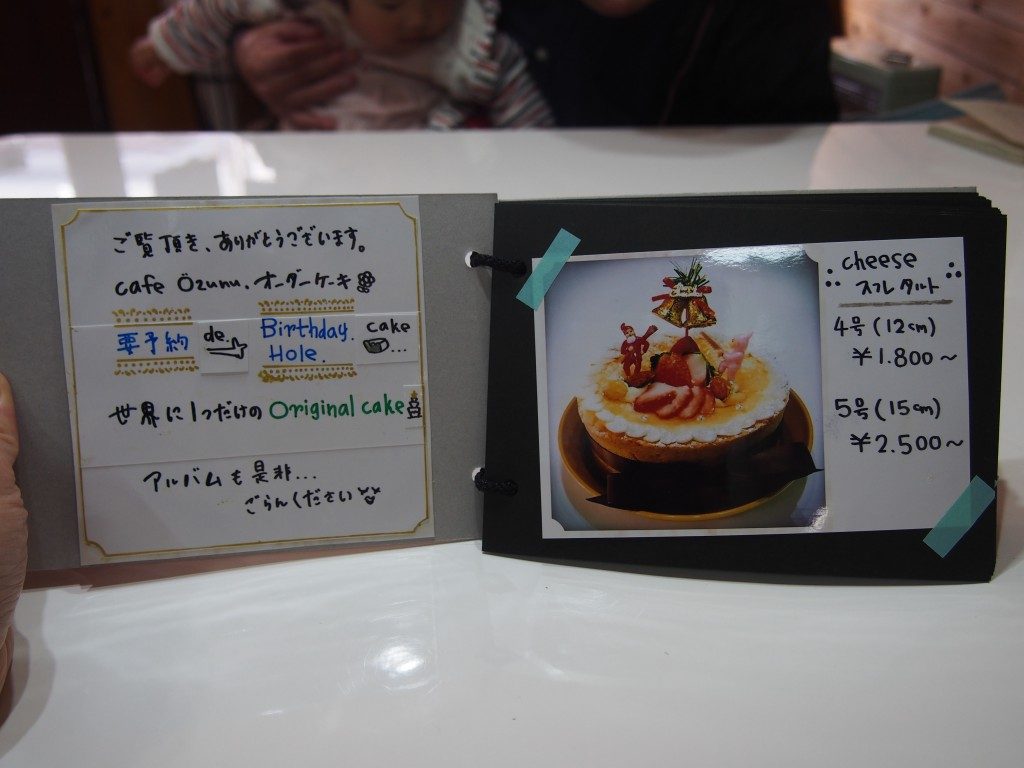 ご覧頂き、ありがとうございます。
cafe Özunu. オーダーケーキ
要予約 de. Birthday. Hole. cake...
世界に1つだけの Original cake
アルバムも是非...
ごらんください
cheese
スフレタルト
4号(12cm)
¥1.800~
5号(15cm)
¥2.500~